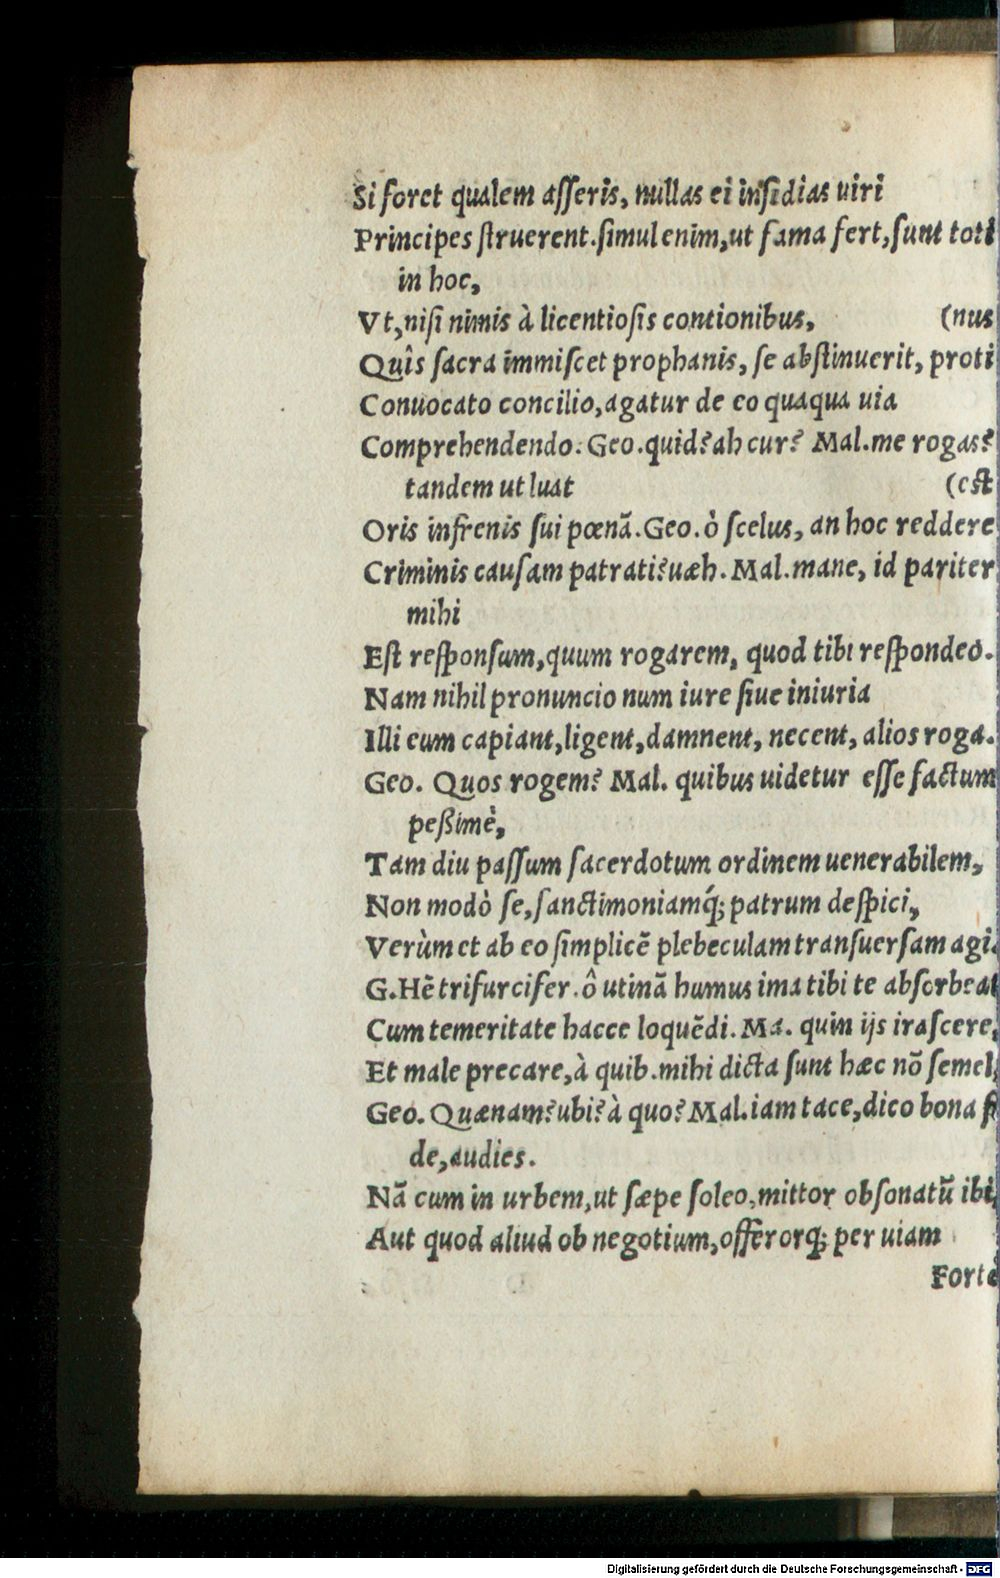 Si foret qualem aſſeris, nullas ei inſidias uiri
Principes ſtruerent.ſimul enim,ut fama fert,ſunt toti
in hoc,
Vt,niſi nimis à licentioſis contionibus, (nus
Quîs ſacra immiſcet prophanis, ſe abſtinuerit, proti
Conuocato concilio,agatur de eo quaqua uia
Comprehendendo. Geo.quid?ah cur? Mal.me rogas?
tandem ut luat (est
Oris infrenis ſui pœnã.Geo.ò ſcelus, an hoc reddere
Criminis cauſam patrati?uæh.Mal.mane, id pariter
mihi
Eſt reſponſum,quum rogarem, quod tibi reſpondeo.
Nam nihil pronuncio num iure ſiue iniuria
Illi eum capiant,ligent,damnent, necent, alios roga.
Geo. Quos rogem? Mal. quibus uidetur eſſe factum
peßimè,
Tam diu paſſum ſacerdotum ordinem uenerabilem,
Non modò ſe,ſanctimoniamq́; patrum deſpici,
Verùm et ab eo ſimplicẽ plebeculam tranſuerſam agi.
G.Hẽ trifurcifer.ô utinã humus ima tibi te abſorbeat
Cum temeritate hacce loquẽdi. Ma. quin ijs iraſcere,
Et male precare,à quib.mihi dicta ſunt hæc nõ ſemel,
Geo. Quænam?ubi?à quo? Mal.iam tace,dico bona fi
de,audies.
Nã cum in urbem,ut ſæpe ſoleo,mittor obſonatũ ibi,
Aut quod aliud ob negotium,offerorq́; per uiam
Fortè
Digitalisierung gefördert durch die Deutsche Forschungsgemeinschaft - DFG